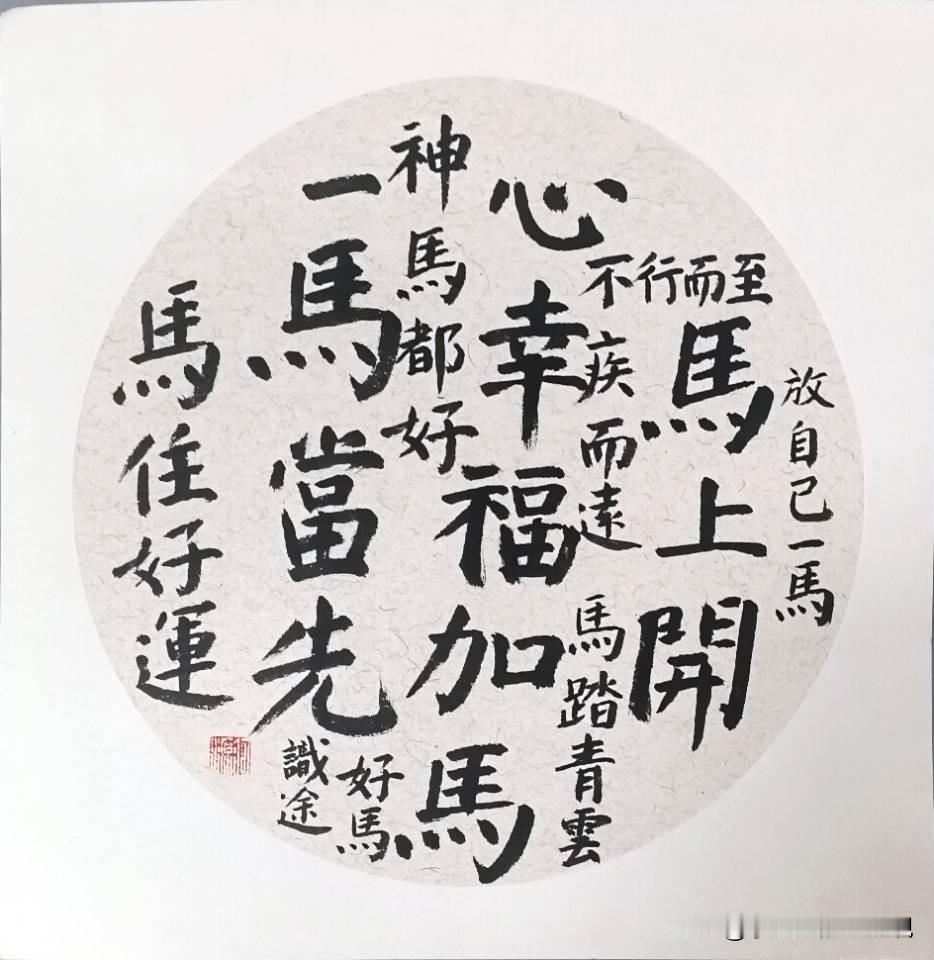 放自己一馬
馬上開心
不行而至
不疾而速
馬踏青雲
幸福加馬
神馬都好
一馬當先
好馬識途
馬住好運